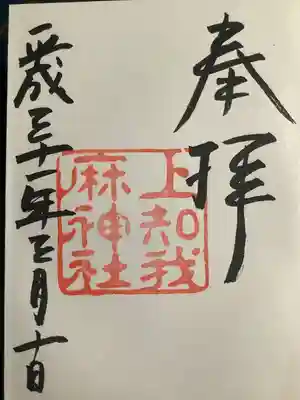 奉拝
上知我
麻神社
平成三十一年三月十日